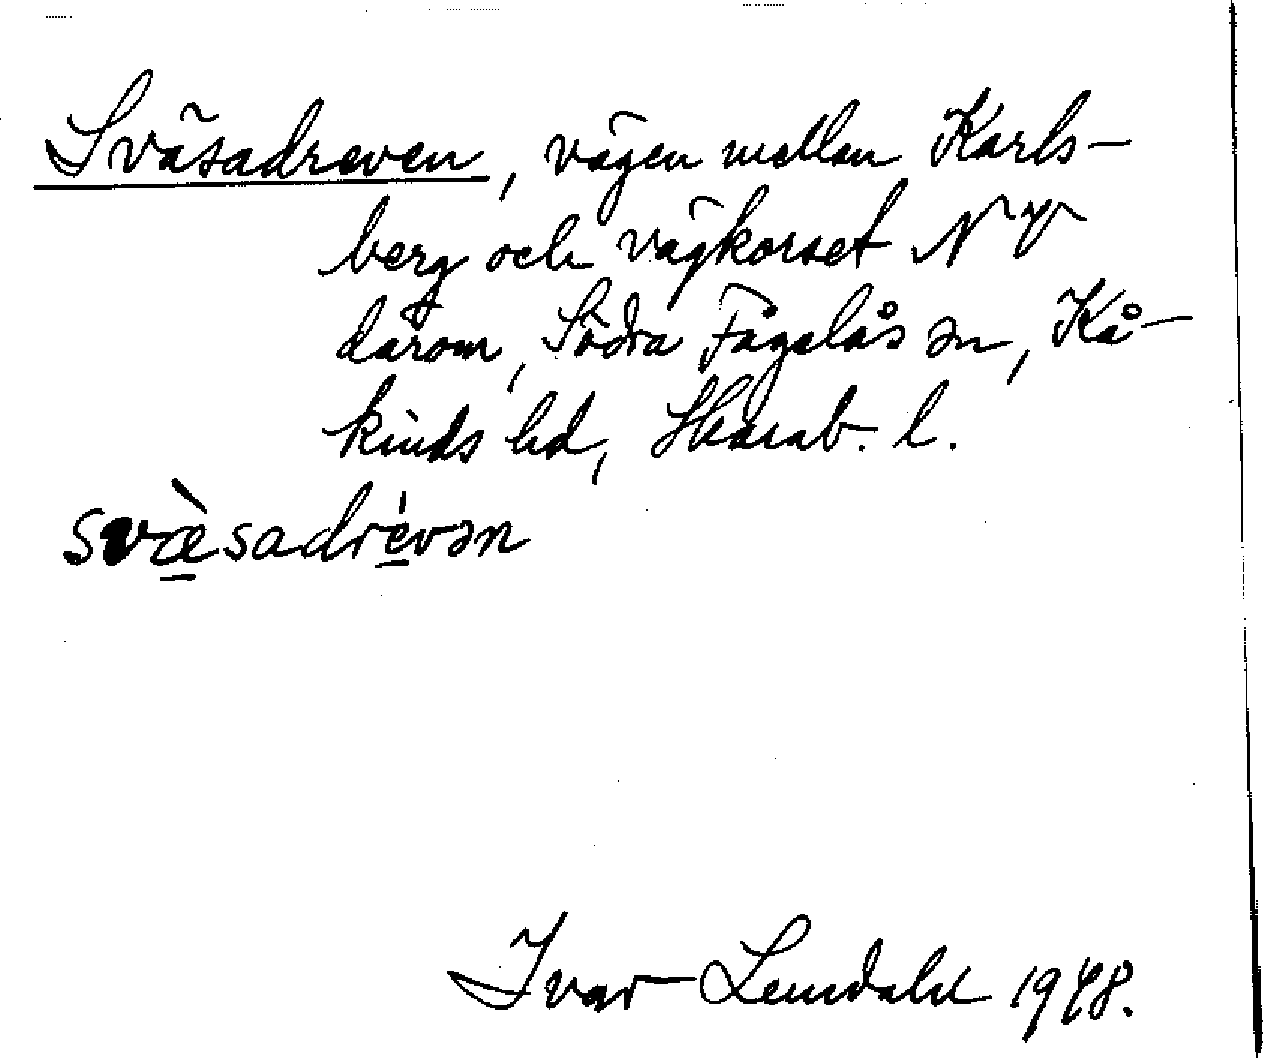 Sväsadreven, vägen mellan Karls-
berg och vägkorset NV
därom, Södra Fågelås sn, Kå-
kinds hd, Skarab. l.
svæ̀sadrévən
Ivar Lundahl 1948.